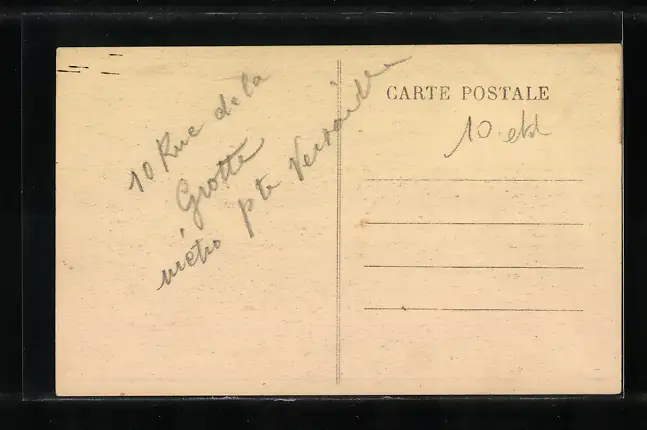 10 Rue de la
Grotte
métro pte Versailles
CARTE POSTALE
10.